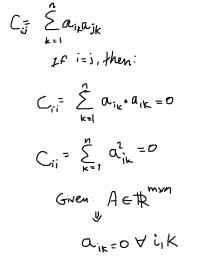 C_ij = Σ_{k=1}^{n} a_ik a_jk
If i=j, then:
C_ii = Σ_{k=1}^{n} a_ik · a_ik = 0
C_ii = Σ_{k=1}^{n} a²_ik = 0
Given: A ∈ ℝ^{m×n}
⇓
a_ik = 0 ∀ i, k